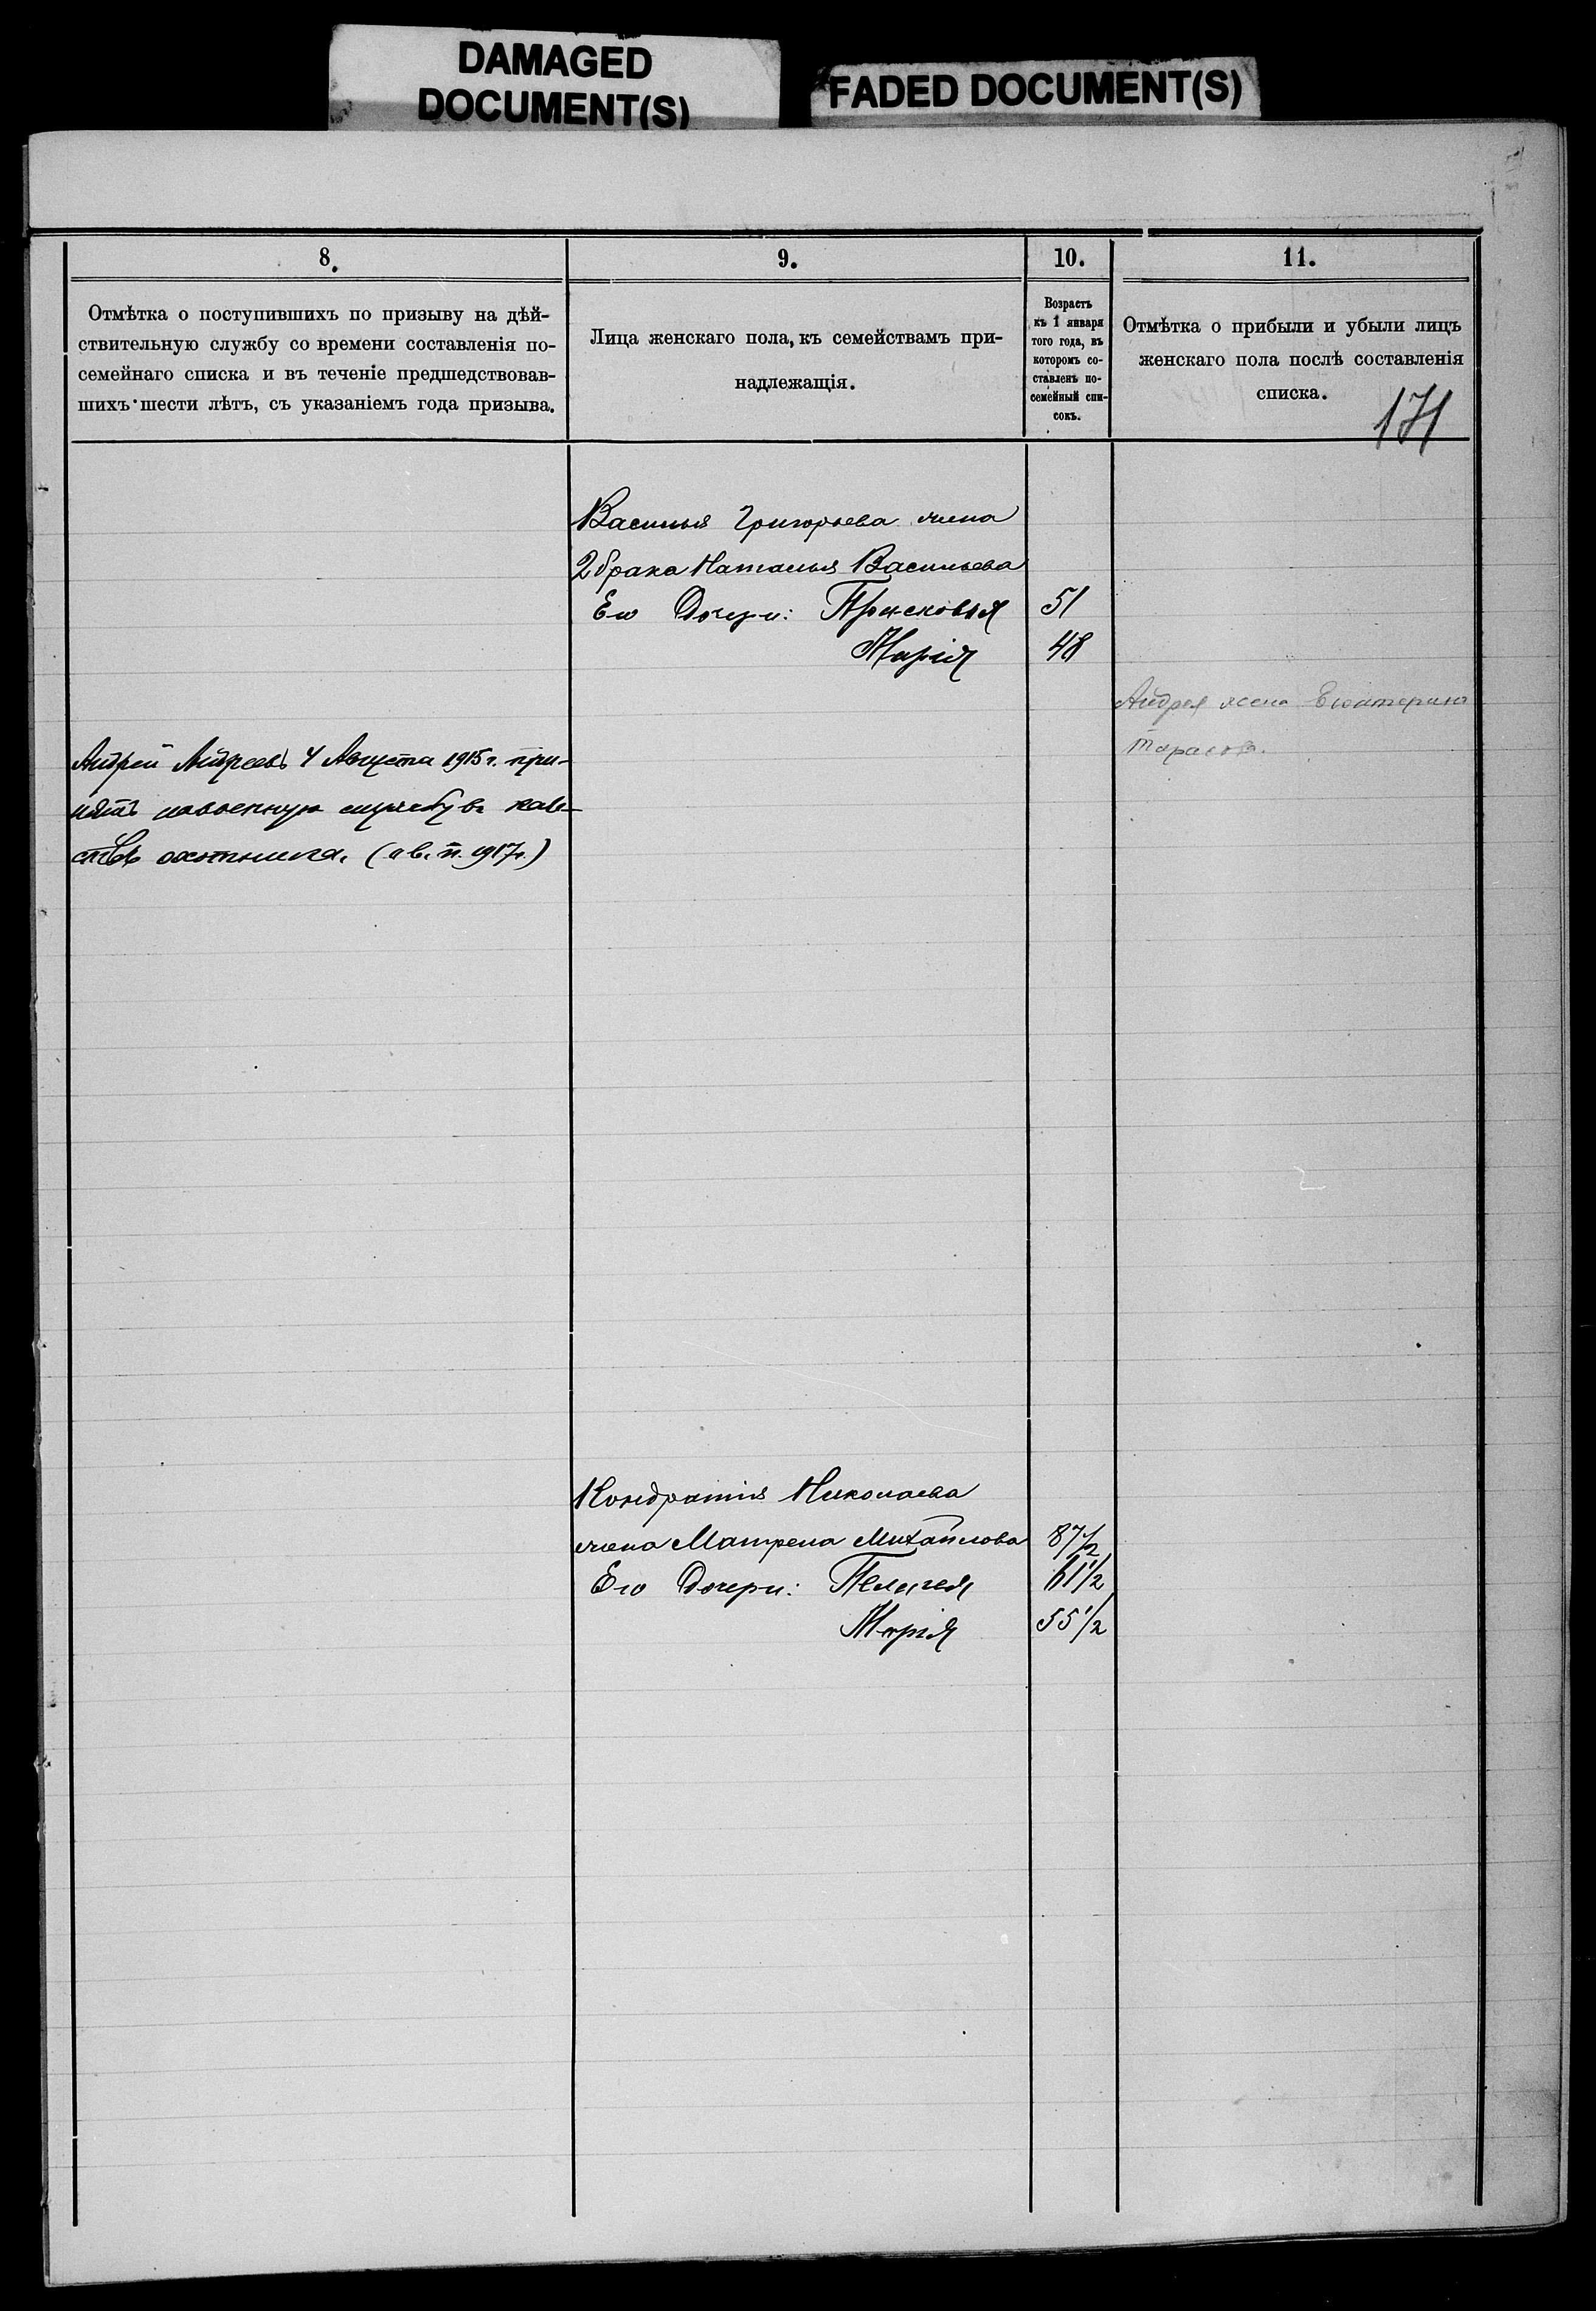 DAMAGED
DOCUMENT(S)
FADED DOCUMENT(S)
8.
Отмѣтка о поступившихъ по призыву на дѣй-
ствительную службу со времени составленія по-
семейнаго списка и въ теченіе предшедствовав-
шихъ шести лѣтъ, съ указаніемъ года призыва.
9.
Лица женскаго пола, къ семействамъ при-
надлежащія.
10.
Возрастъ
къ 1 января
того года, въ
которомъ со-
ставленъ по-
семейный спи-
сокъ.
11.
Отмѣтка о прибыли и убыли лицъ
женскаго пола послѣ составленія
списка.
171
Василья Григорьева жена
2 брака Наталья Васильева
Его Дочери: Прасковья 51
Марія 48
Андрея жена Екатерина
Тарасова.
Андрей Андреевъ 4 Августа 1915 г. при-
нятъ на военную службу въ каче-
ствѣ охотника. (в. п. 1917 г.)
Кондратія Николаева
жена Матрена Михайлова 87 1/2
Его Дочери: Пелагея 61 1/2
Марія 55 1/2